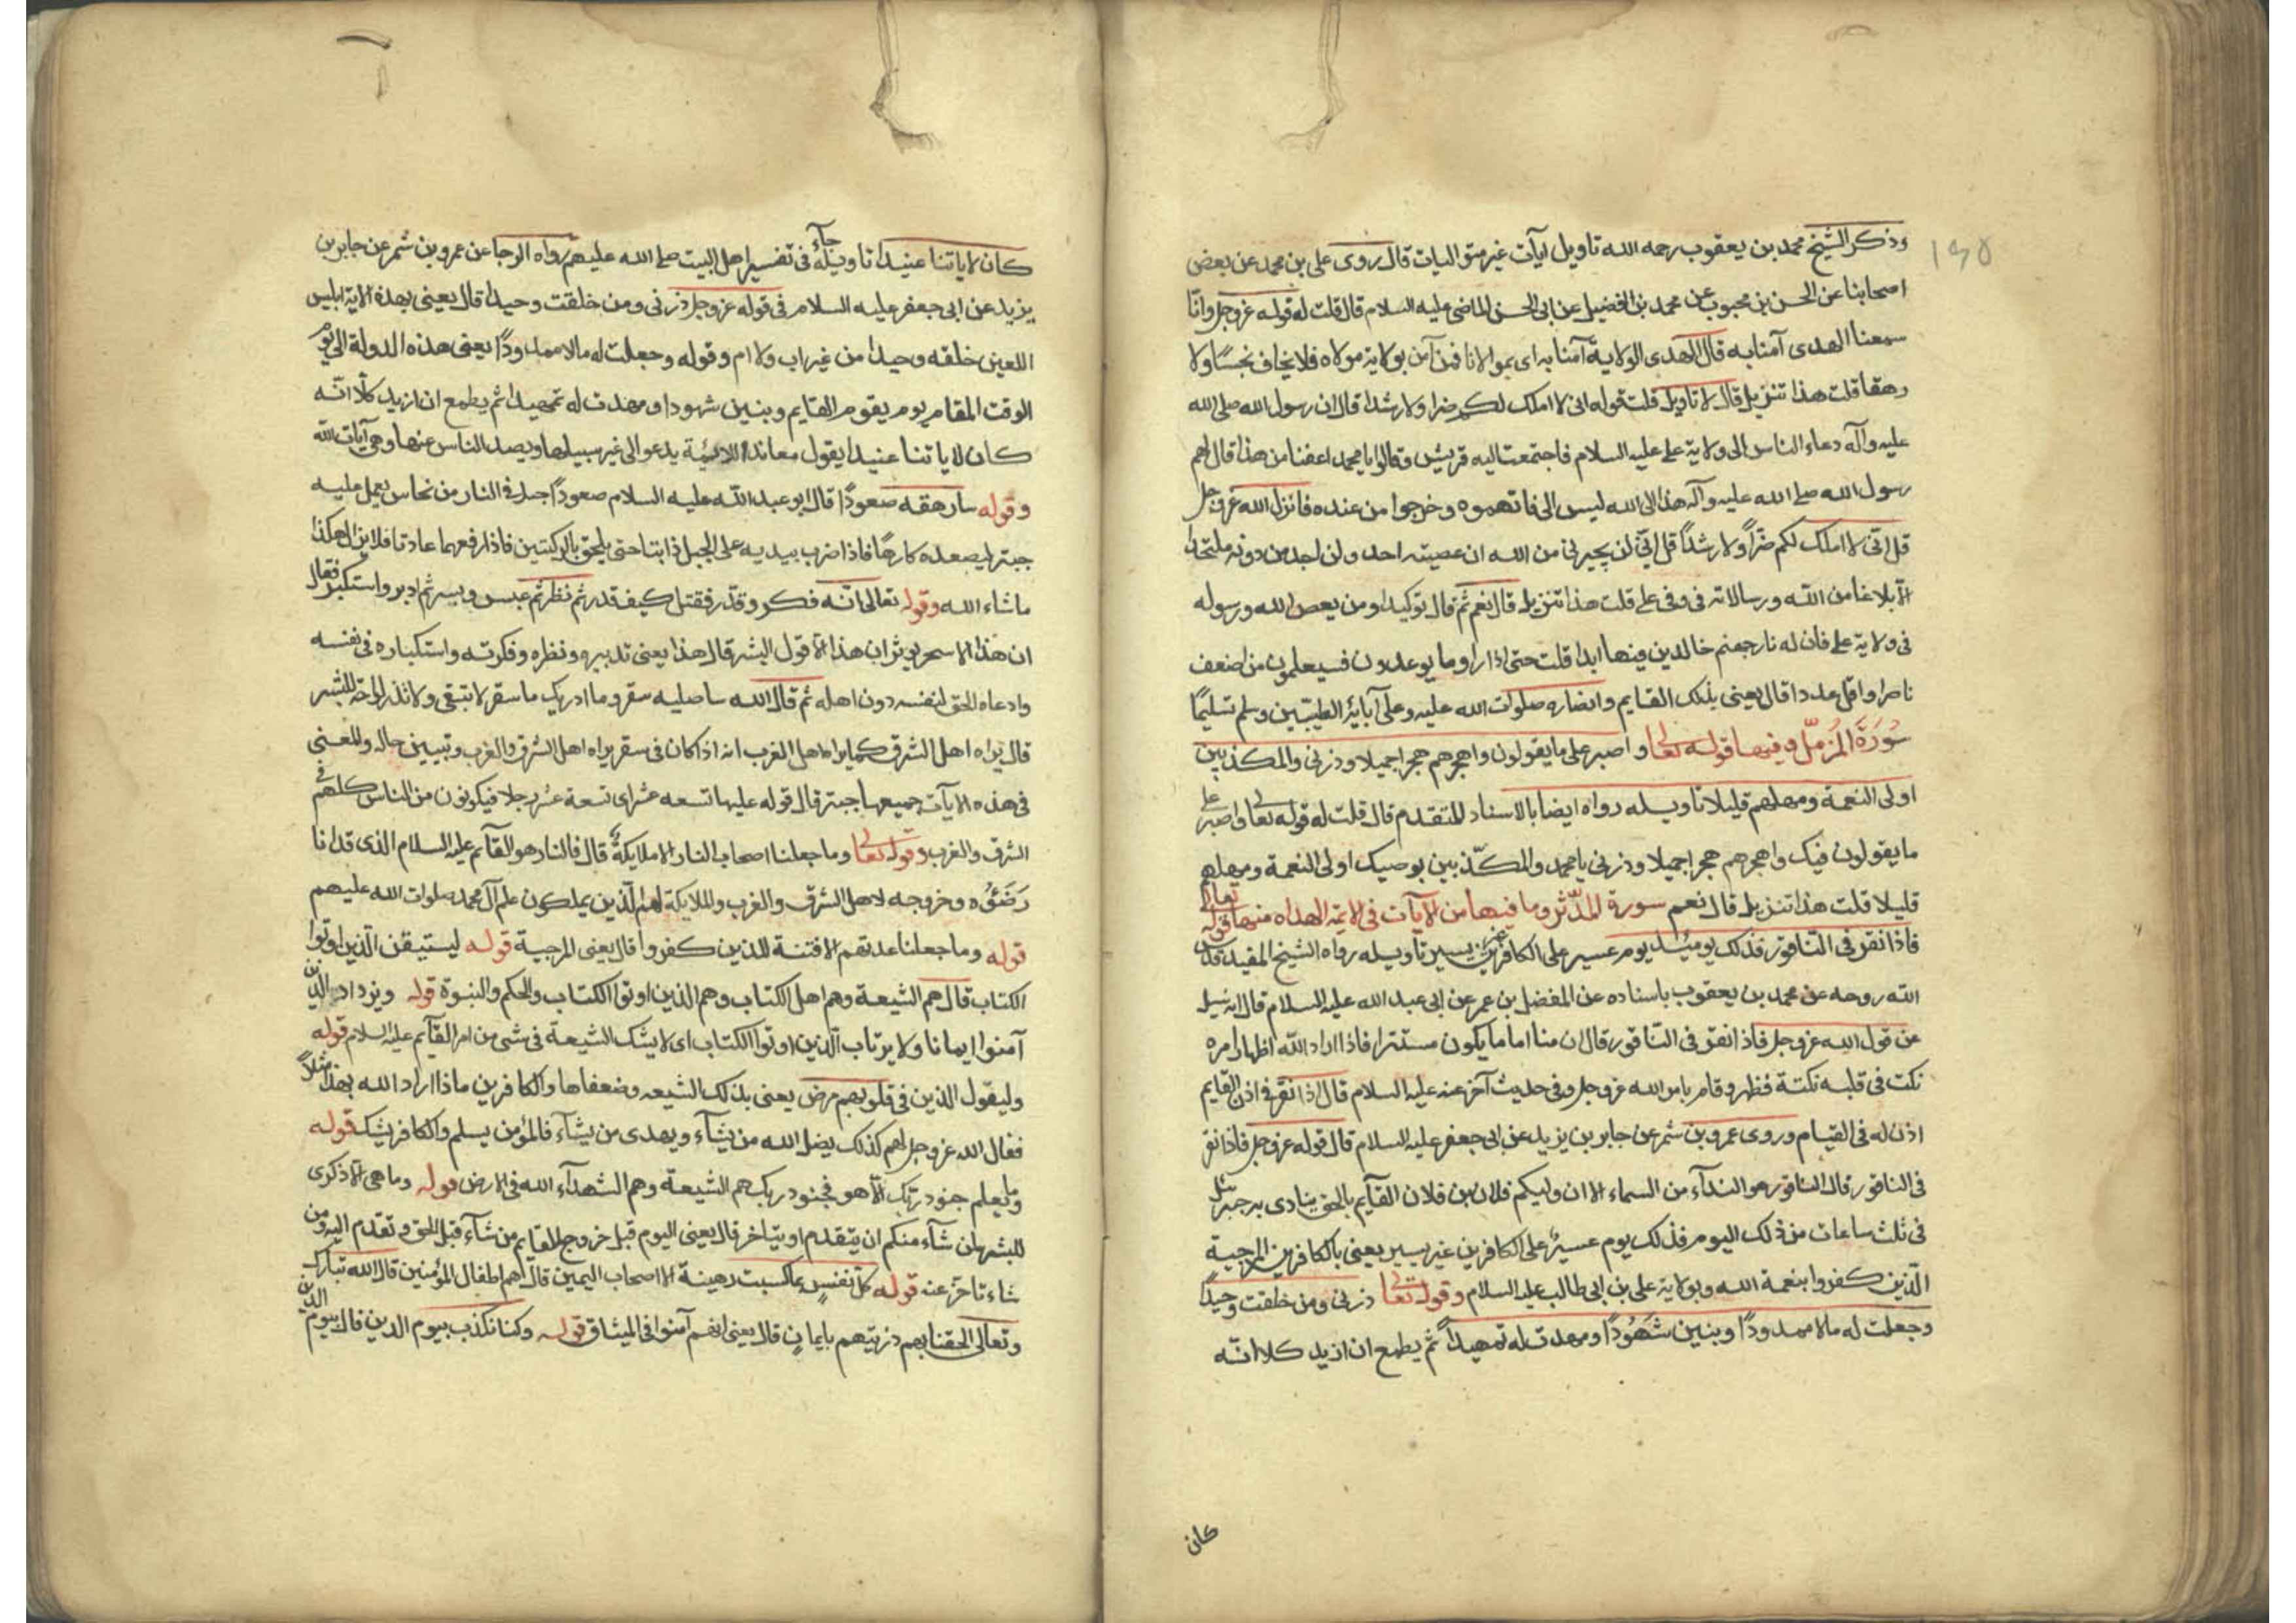 ١٤٥
وذكر الشيخ محمد بن يعقوب رحمه الله تاويل آيات غير متواليات قال روى على بن محمد عن بعض
اصحابنا عن الحسن بن محبوب عن محمد بن الفضيل عن ابى الحسن الماضى عليه السلام قال قلت له قوله عز وجل وانا
سمعنا الهدى آمنا به قال الهدى الولاية آمنا به اى بمولانا فمن آمن بولاية مولاه فلا يخاف بخسا ولا
رهقا قلت هذا تنزيل قال لا تاويل قلت قوله انى لا املك لكم ضرا ولا رشدا قال ان رسول الله صلى الله
عليه وآله دعاء الناس الى ولاية على عليه السلام فاجتمعت اليه قريش وقالوا يا محمد اعفنا من هذا قال لهم
رسول الله صلى الله عليه وآله هذا الى الله ليس الى فاتهموه وخرجوا من عنده فانزل الله عز وجل
قل انى لا املك لكم ضرّاً ولا رشداً قل انى لن يجيرنى من الله ان عصيته احد ولن اجد من دونه ملتحدا
الا بلاغا من الله ورسالاته فى وفى على قلت هذا تنزيل قال نعم ثم قال توكيدا ومن يعص الله ورسوله
فى ولاية على فان له نار جهنم خالدين فيها ابدا قلت حتى اذا راوما يوعدون فسيعلمون من اضعف
ناصرا واقل عددا قال يعنى بذلك القايم وانصاره صلوات الله عليه وعلى آبائه الطيبين وسلم تسليما
سورة المزمل وفيها قوله تعالى واصبر على ما يقولون واهجرهم هجرا جميلا وذرنى والمكذبين
اولى النعمة ومهلهم قليلا تاويله رواه ايضا بالاسناد المتقدم قال قلت له قوله تعالى واصبر على
ما يقولون فيك واهجرهم هجرا جميلا وذرنى يا محمد والمكذبين بوصيك اولى النعمة ومهلهم
قليلا قلت هذا تنزيل قال نعم سورة المدثر وما فيها من الآيات فى الايمة الهداه منها قوله تعالى
فاذا نقر فى الناقور فذلك يومئذ يوم عسير على الكافرين غير يسير تاويله رواه الشيخ المفيد قدس
الله روحه عن محمد بن يعقوب باسناده عن المفضل بن عمر عن ابى عبد الله عليه السلام قال انه سئل
عن قول الله عز وجل فاذا نقر فى الناقور قال ان منا اماما يكون مستترا فاذا اراد الله اظهار امره
نكت فى قلبه نكتة فظهر وقام بامر الله عز وجل وفى حديث آخر عنه عليه السلام قال اذا نقر فى اذن القايم
اذن له فى القيام وروى عمرو بن شمر عن جابر بن يزيد عن ابى جعفر عليه السلام قال قوله عز وجل فاذا نقر
فى الناقور قال الناقور هو النداء من السماء الا ان وليكم فلان بن فلان القايم بالحق ينادى به جبرئيل
فى ثلث ساعات من ذلك اليوم فذلك يوم عسير على الكافرين غير يسير يعنى بالكافرين المرجية
الذين كفروا بنعمة الله وبولاية على بن ابى طالب عليه السلام وقوله تعالى ذرنى ومن خلقت وحيداً
وجعلت له مالا ممدوداً وبنين شهوداً ومهدت له تمهيداً ثم يطمع ان ازيد كلا انه
كان
كان لاياتنا عنيدا تاويله جآء فى تفسير اهل البيت صلى الله عليهم رواه الوجا عن عمرو بن شمر عن جابر بن
يزيد عن ابى جعفر عليه السلام فى قوله عز وجل ذرنى ومن خلقت وحيدا قال يعنى بهذه الاية ابليس
اللعين خلقه وحيدا من غير اب ولا ام وقوله وجعلت له مالا ممدوداً يعنى هذه الدولة الى يوم
الوقت المقام يوم يقوم القايم وبنين شهودا ومهدت له تمهيدا ثم يطمع ان ازيد كلا انه
كان لاياتنا عنيدا يقول معاندا للائمة يدعوا الى غير سبيلها ويصد الناس عنها وهى آيات الله
وقوله سارهقه صعوداً قال ابو عبد الله عليه السلام صعوداً جبل فى النار من نحاس يحمل عليه
جبتر ليصعده كارها فاذا ضرب بيديه على الجبل ذابتا حتى يلحق بالركبتين فاذا رفعهما عادتا فلا يزال هكذا
ما شاء الله وقوله تعالى انه فكر وقدر فقتل كيف قدر ثم نظر ثم عبس وبسر ثم ادبر واستكبر فقال
ان هذا الا سحر يوثر ان هذا الا قول البشر قال هذا يعنى تدبيره ونظره وفكرته واستكباره فى نفسه
وادعاه الحق لنفسه دون اهله ثم قال الله ساصليه سقر وما ادريك ما سقر لا تبقى ولا تذر لواحة للبشر
قال يراه اهل الشرق كما يراه اهل الغرب انه اذا كان فى سقر يراه اهل الشرق والغرب وتبيين حاله والمعنى
فى هذه الايات جميعها جبتر قال قوله عليها تسعه عشر اى تسعة عشر رجلا فيكونون من الناس كلهم فى
الشرق والغرب وقوله تعالى وما جعلنا اصحاب النار الا ملايكة قال فالنار هو القآيم عليه السلام الذى قد انا
رضوؤه وخروجه لاهل الشرق والغرب والملايكة هم الذين يملكون علم آل محمد صلوات الله عليهم
قوله وما جعلنا عدتهم الا فتنة للذين كفروا قال يعنى المرجية قوله ليستيقن الذين اوتوا
الكتاب قال هم الشيعة وهم اهل الكتاب وهم الذين اوتوا الكتاب والحكم والنبوة قوله ويزداد الذين
آمنوا ايمانا ولا يرتاب الذين اوتوا الكتاب اى لا يشك الشيعة فى شى من امر القآيم عليه السلام قوله
وليقول الذين فى قلوبهم مرض يعنى بذلك الشيعه وضعفاها والكافرين ماذا اراد الله بهذا مثلاً
فقال الله عز وجل لهم كذلك يضل الله من يشآء ويهدى من يشآء فالمؤمن يسلم والكافر يشك قوله
وما يعلم جنود ربك الا هو فجنود ربك هم الشيعة وهم الشهدآء الله فى الارض قوله وما هى الا ذكرى
للبشر لمن شآء منكم ان يتقدم او يتاخر قال يعنى اليوم قبل خروج القايم من شآء قبل الحق وتقدم اليه ومن
شاء تاخر عنه قوله كل نفس بما كسبت رهينة الا اصحاب اليمين قال هم اطفال المؤمنين قال الله تبارك
وتعالى الحقنا بهم ذريتهم بايمان قال يعنى انهم آمنوا فى الميثاق قوله وكنا نكذب بيوم الدين قال بيوم الدين